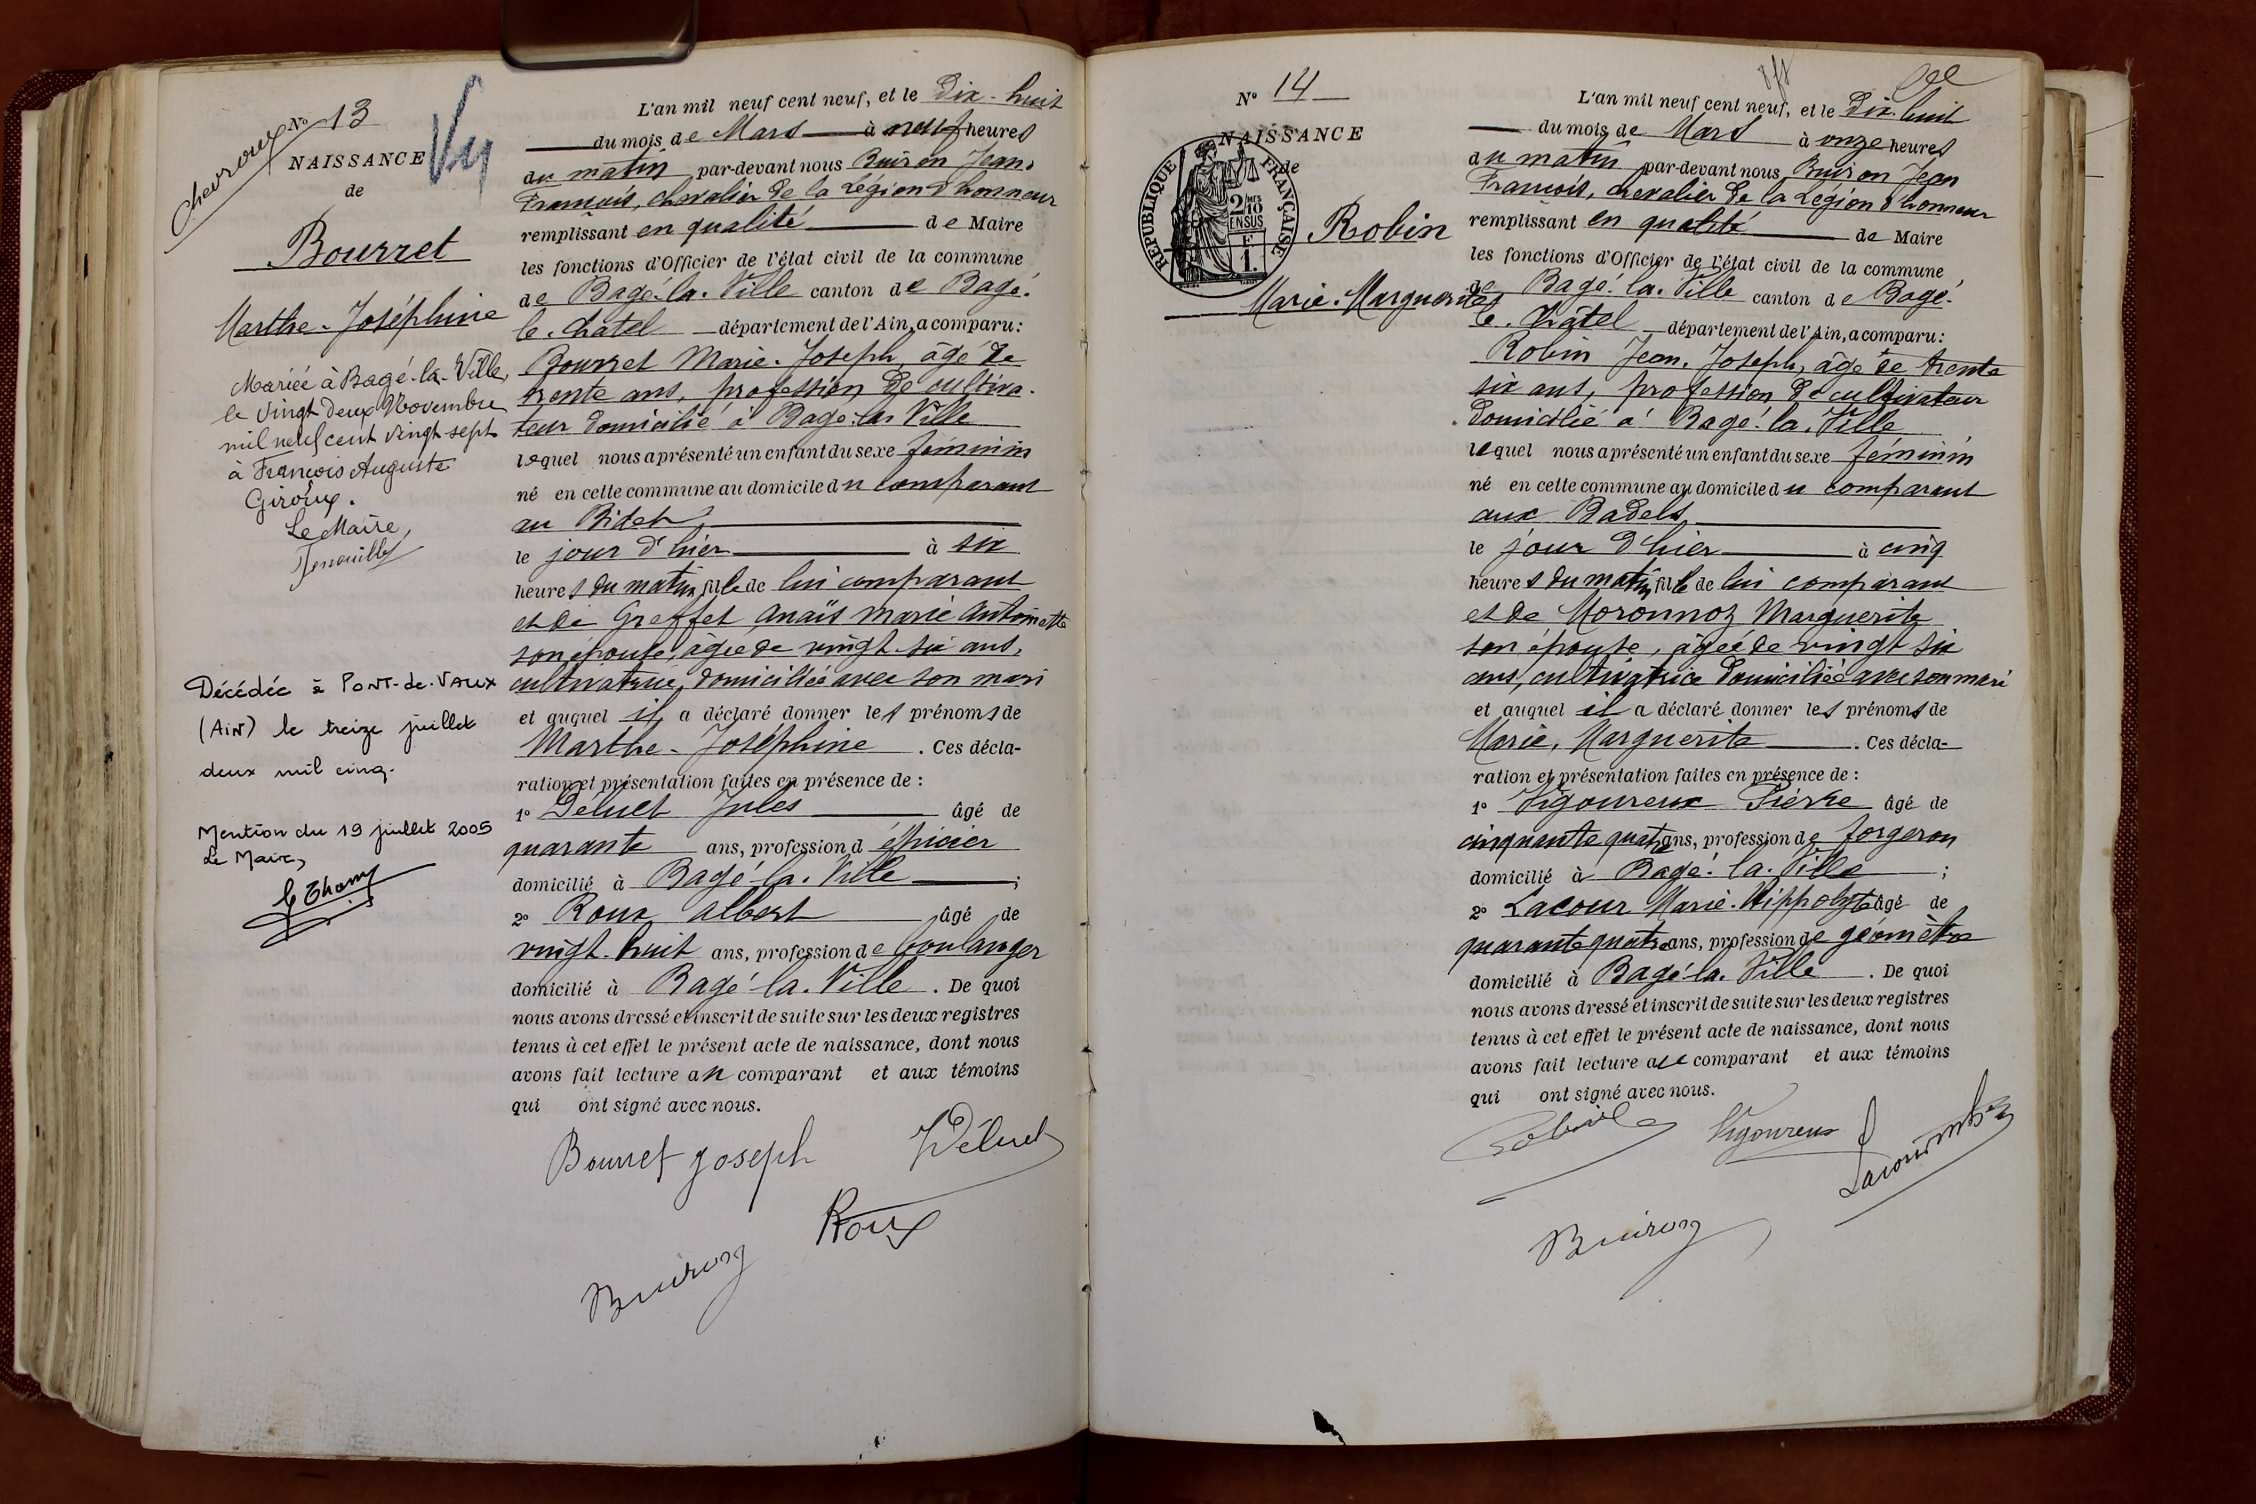 Chevroux
N° 13
Vu
NAISSANCE
de
Bourret
Marthe-Joséphine
Mariée à Bagé-la-Ville,
le vingt deux Novembre
mil neuf cent vingt sept
à François Auguste
Giroux.
Le Maire,
Décédée à PONT-de-VAUX
(AIN) le treize juillet
deux mil cinq.
Mention du 19 juillet 2005
Le Maire,
L'an mil neuf cent neuf, et le Dix-huit
du mois de Mars à neuf heures
du matin par-devant nous Buiron Jean-
François, chevalier de la Légion d'honneur
remplissant en qualité de Maire
les fonctions d'Officier de l'état civil de la commune
de Bagé-la-Ville canton de Bagé-
le-Chatel département de l'Ain, a comparu:
Bourret Marie-Joseph, âgé de
trente ans, profession de cultiva-
teur domicilié à Bagé-la-Ville
lequel nous a présenté un enfant du sexe féminin
né en cette commune au domicile du comparant
au Bidet,
le jour d'hier à six
heures du matin, fille de lui comparant
et de Greffet Anaïs Marie Antoinette
son épouse, âgée de vingt-six ans,
cultivatrice, domiciliée avec son mari
et auquel il a déclaré donner les prénoms de
Marthe-Joséphine. Ces décla-
ration et présentation faites en présence de :
1° Déluet Jules âgé de
quarante ans, profession d'épicier
domicilié à Bagé-la-Ville ;
2° Roux Albert âgé de
vingt-huit ans, profession de boulanger
domicilié à Bagé-la-Ville. De quoi
nous avons dressé et inscrit de suite sur les deux registres
tenus à cet effet le présent acte de naissance, dont nous
avons fait lecture au comparant et aux témoins
qui ont signé avec nous.
Bourret Joseph
J Déluet
Roux
Buiron
N° 14
NAISSANCE
de
RÉPUBLIQUE FRANÇAISE
2/10
EN SUS
1 F.
Robin
Marie-Marguerite
L'an mil neuf cent neuf, et le Dix-huit
du mois de Mars à onze heures
du matin par-devant nous Buiron Jean
François, chevalier de la Légion d'honneur
remplissant en qualité de Maire
les fonctions d'Officier de l'état civil de la commune
de Bagé-la-Ville canton de Bagé-
le-Châtel département de l'Ain, a comparu:
Robin Jean-Joseph, âgé de trente
six ans, profession de cultivateur
domicilié à Bagé-la-Ville
lequel nous a présenté un enfant du sexe féminin
né en cette commune au domicile du comparant
aux Badels,
le jour d'hier à cinq
heures du matin, fille de lui comparant
et de Moronnoz Marguerite
son épouse, âgée de vingt six
ans, cultivatrice domiciliée avec son mari
et auquel il a déclaré donner les prénoms de
Marie, Marguerite. Ces décla-
ration et présentation faites en présence de :
1° Vigoureux Pierre âgé de
cinquante quatre ans, profession de forgeron
domicilié à Bagé-la-Ville ;
2° Lacour Marie-Hippolyte âgé de
quarante quatre ans, profession de géomètre
domicilié à Bagé-la-Ville. De quoi
nous avons dressé et inscrit de suite sur les deux registres
tenus à cet effet le présent acte de naissance, dont nous
avons fait lecture au comparant et aux témoins
qui ont signé avec nous.
Robin
Vigoureux
Lacour
Buiron